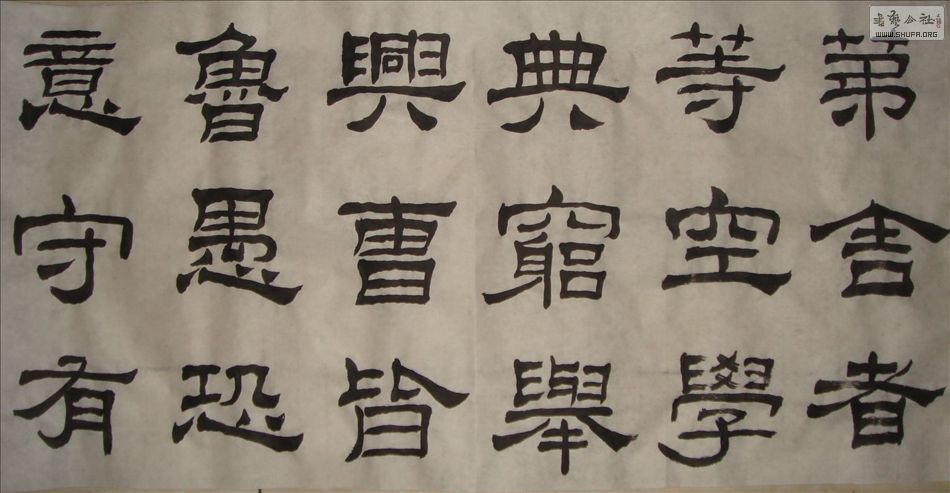 第舍者
等空學
典窮舉
興曹皆
魯愚恐
意守有
書藝公社
WWW.SHUFA.ORG